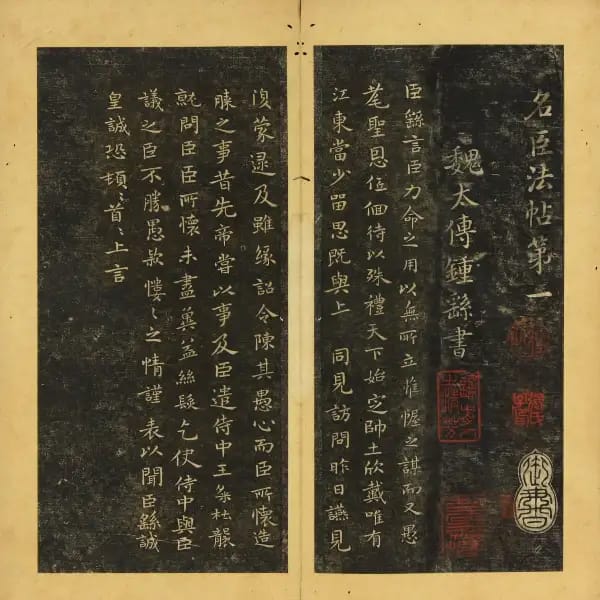 名臣法帖第一
魏太傅鍾繇書
臣繇言臣力命之用以無所立惟幄之謀而又愚
耄聖恩低佪待以殊禮天下始定帥土欣戴唯有
江東當少留思既與上 同見訪問昨日讌見
復蒙逮及雖緣詔令陳其愚心而臣所懷造
膝之事昔先帝嘗以事及臣遣侍中王粲杜襲
就問臣臣所懷未盡冀益絲髮乞使侍中與臣
議之臣不勝愚款慺〻之情謹 表以聞臣繇誠
皇誠恐頓〻首〻上言
御書